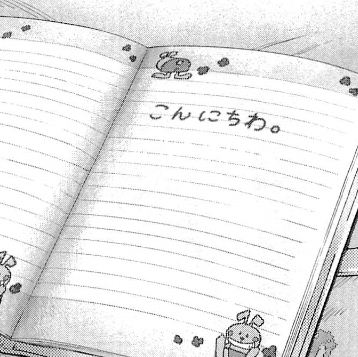 こんにちわ。